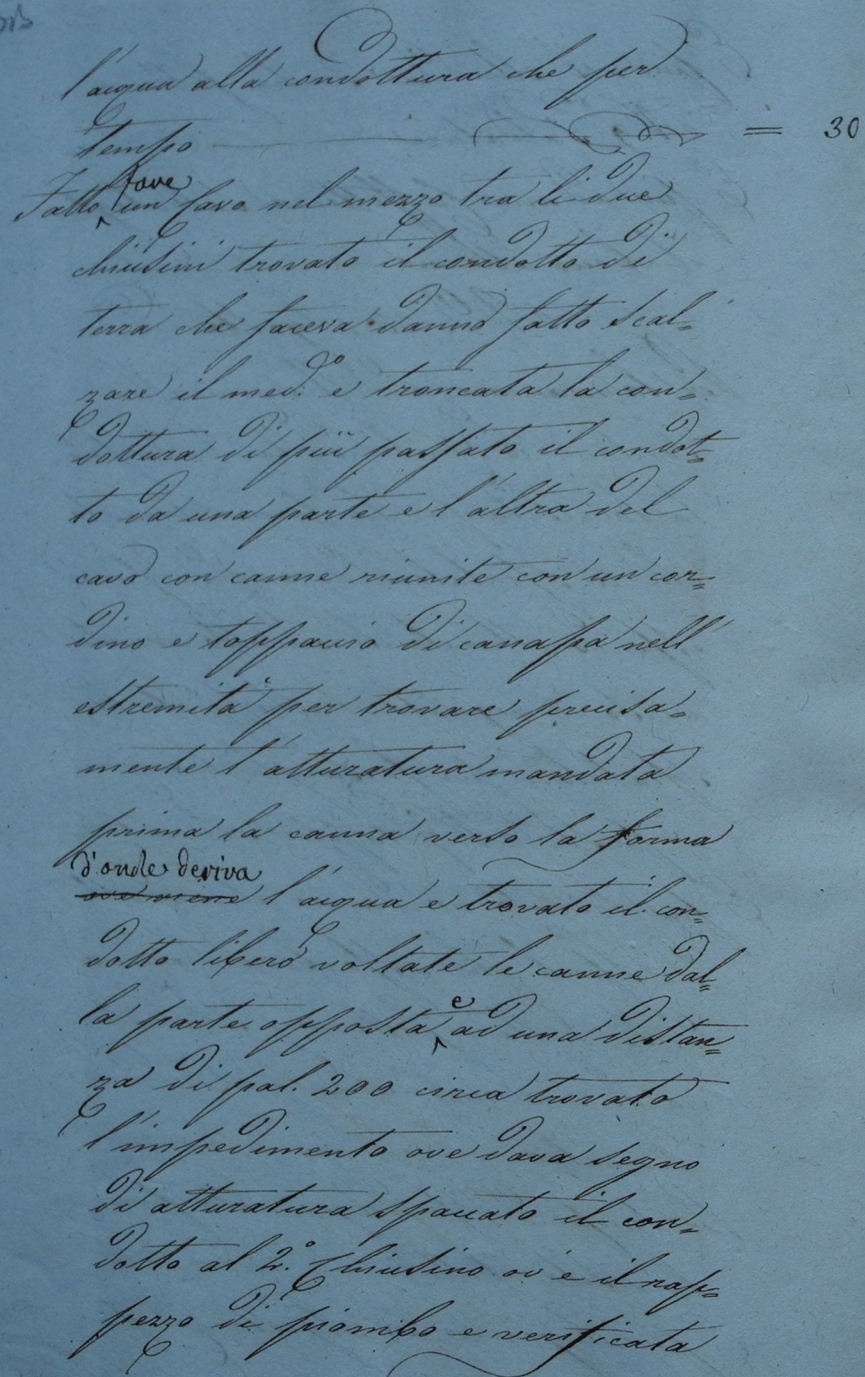 l'acqua alla condottura che per
tempo = 30
fare
Fatto un Cavo nel mezzo tra li due
chiusini trovato il condotto di
terra che faceva danno fatto scal=
zare il med.o e troncata la con=
dottura di più passato il condot=
to da una parte e l'altra del
cavo con canne riunite con un cor=
dino e toppaccio di canapa nell'
estremità per trovare precisa=
mente l'atturatura mandata
prima la canna verso la forma
d'onde deriva
ove viene l'acqua e trovato il con=
dotto libero voltate le canne dal=
la parte opposta e ad una distan=
za di pal. 200 circa trovato
l'impedimento ove dava segno
di atturatura spaccato il con=
dotto al 2.o Chiusino ov'è il rap=
pezzo di piombo e verificata